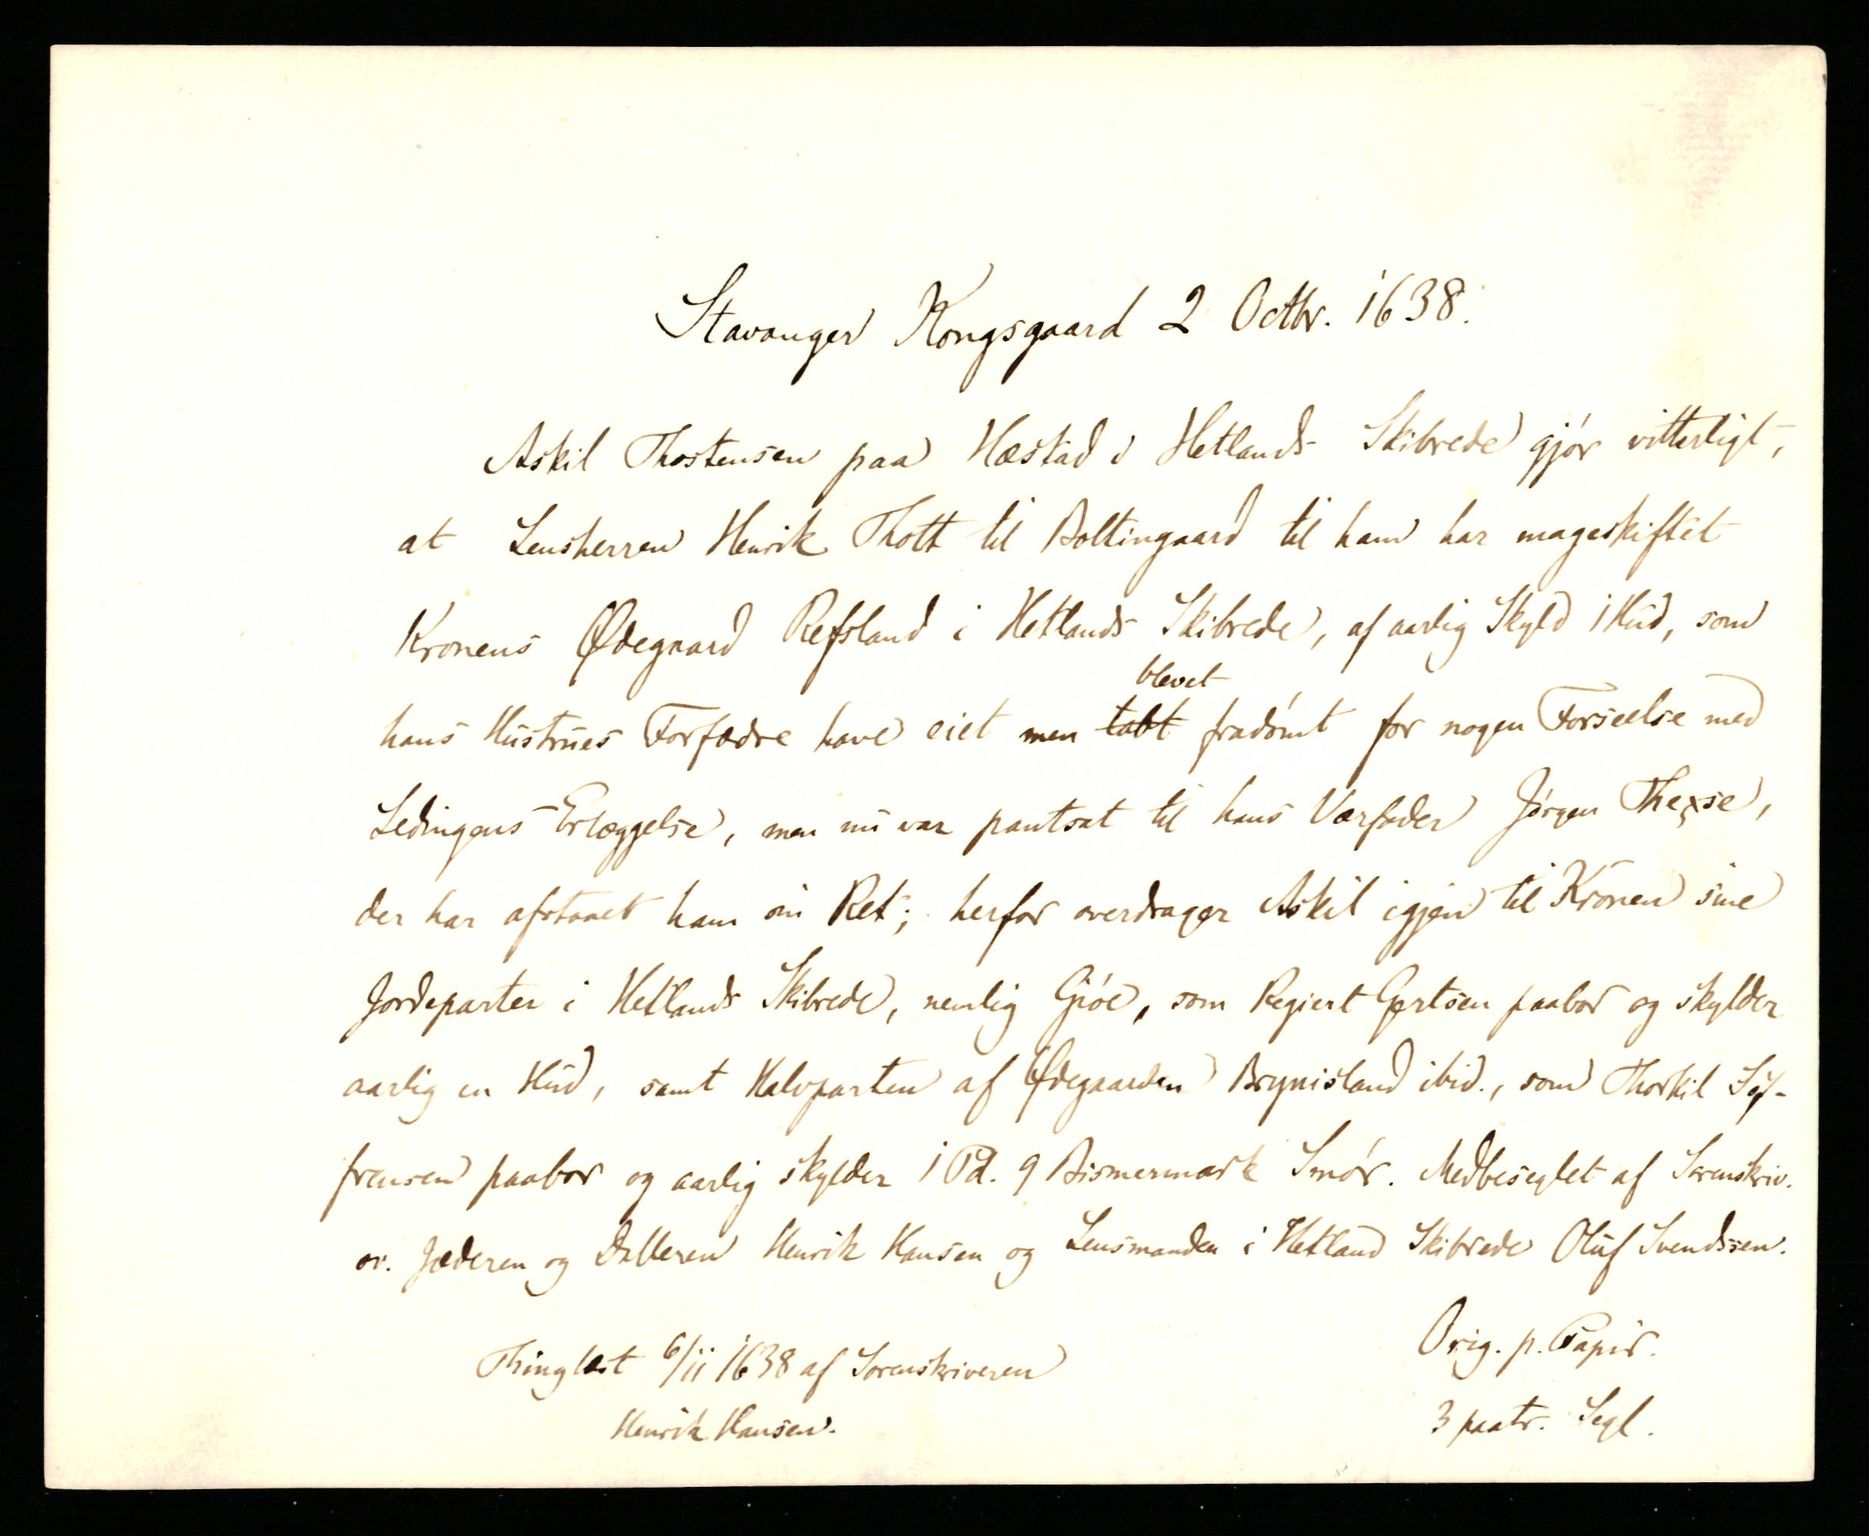 Stavanger Kongsgaard 2 Octbr. 1638.
Askil Thostensen paa Hæstad i Hetlands Skibrede gjør vitterligt,
at Lensherren Henrik Thott til Boltingaard til ham har mageskiftet
Kronens Ødegaard Refsland i Hetlands Skibrede, af aarlig Skyld 1 Hud, som
hans Hustrues Forfædre have eiet men tabt blevet fradømt for nogen Forseelse med
Ledingens Erlæggelse, men nu var pantsat til hans Værfader Jørgen
der har afstaaet ham sin Ret; herfor overdrager Askil igjen til Kronen sine
Jordeparter i Hetlands Skibrede, nemlig Gjøe, som Regiert Gertsen paabor og skylder
aarlig en Hud, samt Halvparten af Ødegaarden Brynisland ibid., som Thorkil Søf-
frensen paabor og aarlig skylder 1 Pd. 9 Bismermark Smør. Medbeseglet af Sorenskriv.
ov. Jæderen og Dalleren Henrik Hansen og Lensmanden i Hetland Skibrede Oluf Svendssen.
Orig. p. Papir.
3 paatr. Segl.
Thinglæst 6/11 1638 af Sorenskriveren
Henrik Hansen.